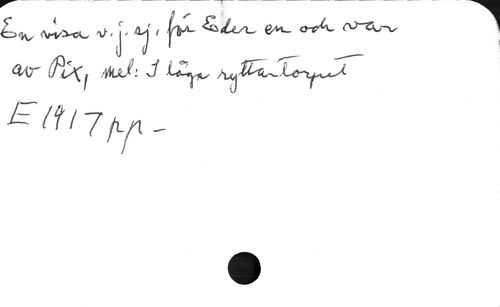 En visa v. j. sj. för Eder en och var
av Pix, mel: I låga ryttartorpet
E 1917 pp -